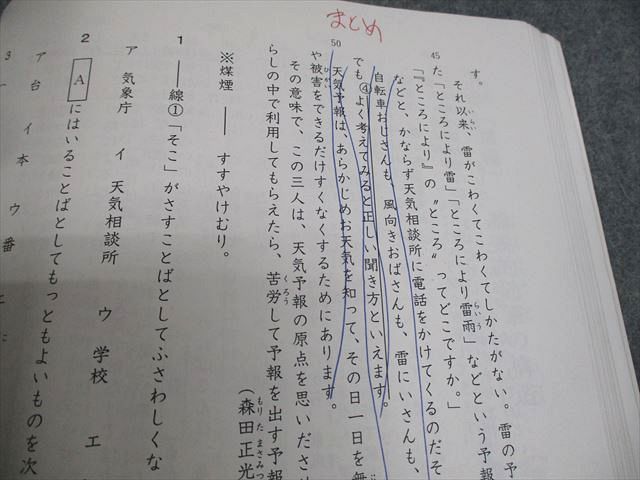 まとめ
す。
それ以来、雷がこわくてこわくてしかたがない。雷の予
いらい
45
た「ところにより雷」「ところにより雷雨」などという予報
らいう
「『ところにより』の〝ところ〟ってどこですか。」
などと、かならず天気相談所に電話をかけてくるのだそ
自転車おじさんも、風向きおばさんも、雷にいさんも、
でも④よく考えてみると正しい聞き方といえます。
50
天気予報は、あらかじめお天気を知って、その日一日を無
や被害をできるだけすくなくするためにあります。
ひがい
その意味で、この三人は、天気予報の原点を思いださせ
らしの中で利用してもらえたら、苦労して予報を出す予報
くろう
(森田正光
もりたまさみつ
※煤煙 ―― すすやけむり。
1 ――線①「そこ」がさすことばとしてふさわしくな
ア 気象庁 イ 天気相談所 ウ 学校 エ
2 A にはいることばとしてもっともよいものを次
ア 台 イ 本 ウ 番 エ
3